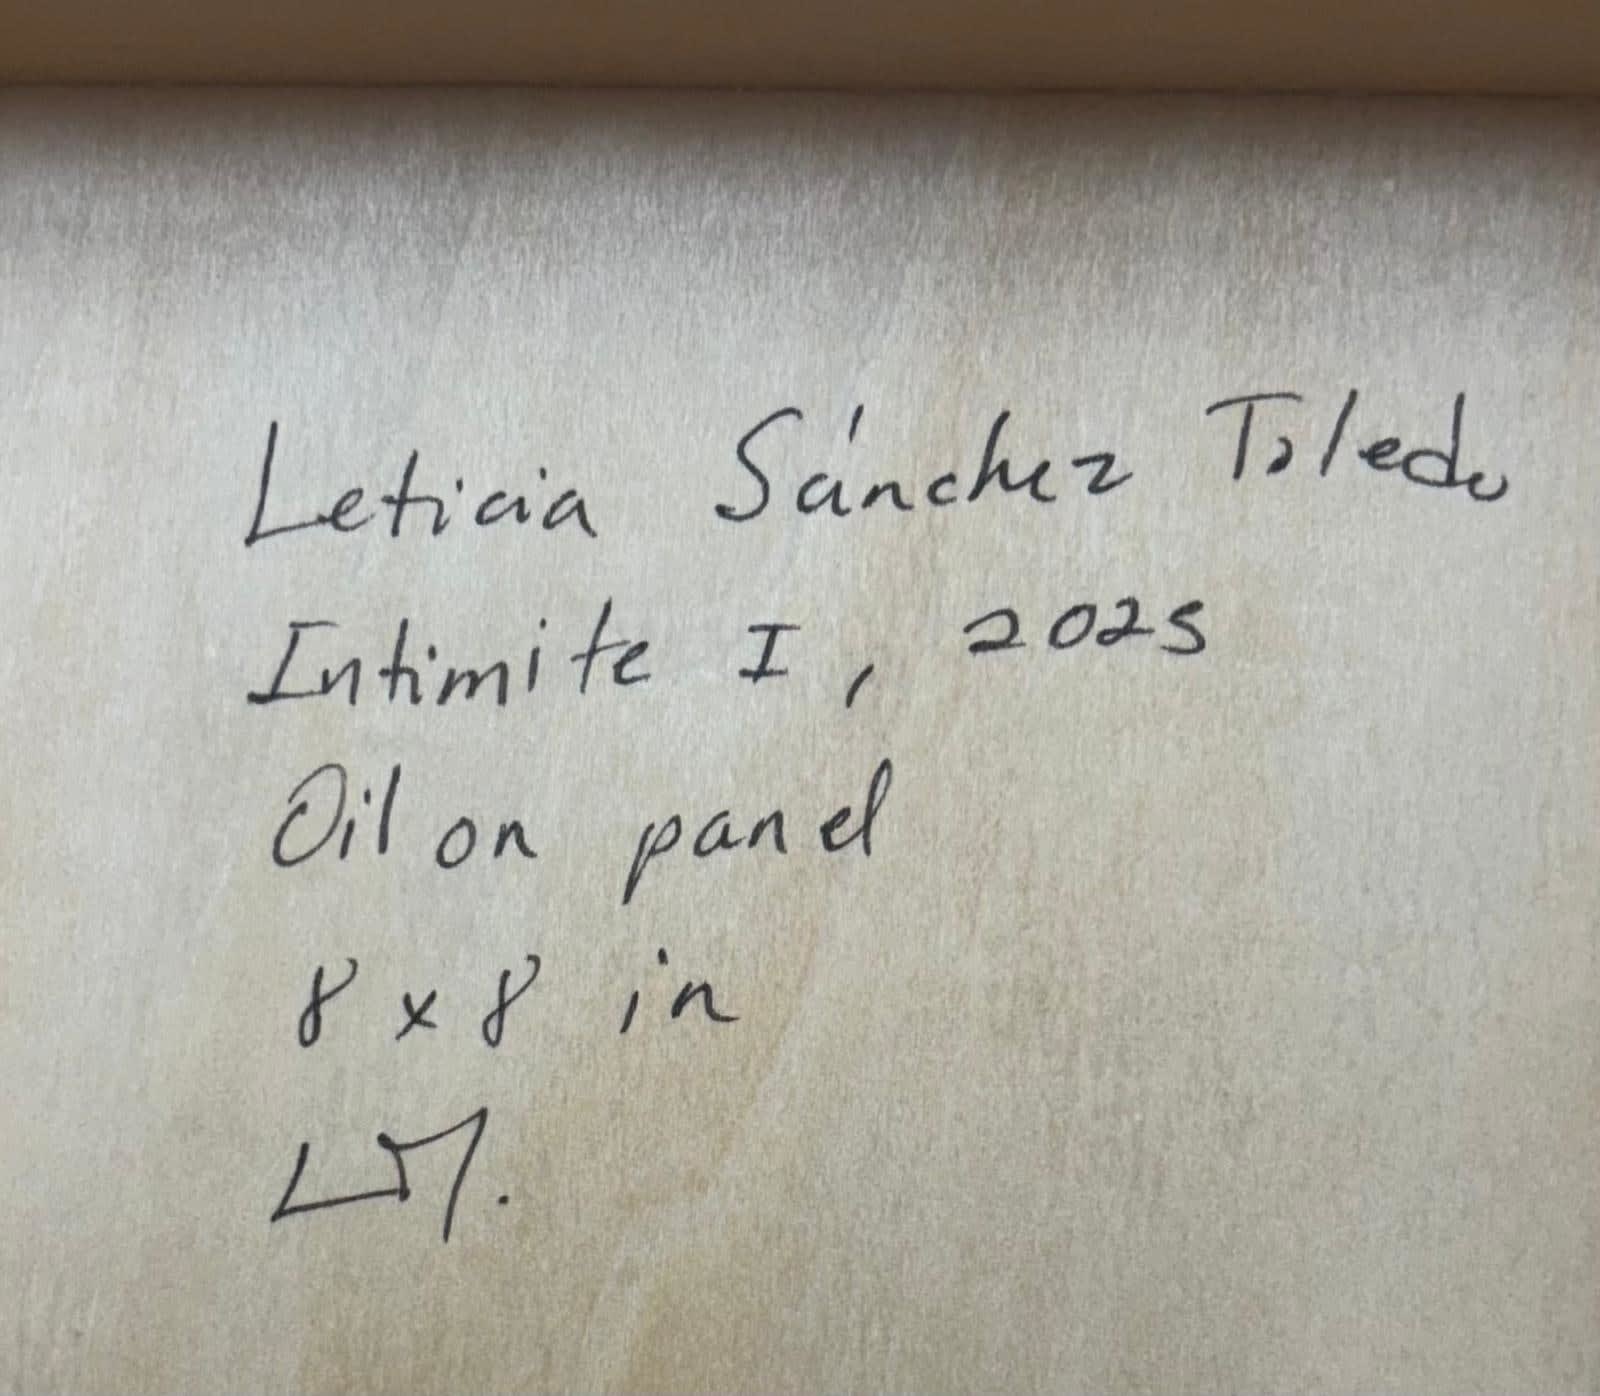 Leticia Sánchez Toledo
Intimite I, 2025
Oil on panel
8 x 8 in